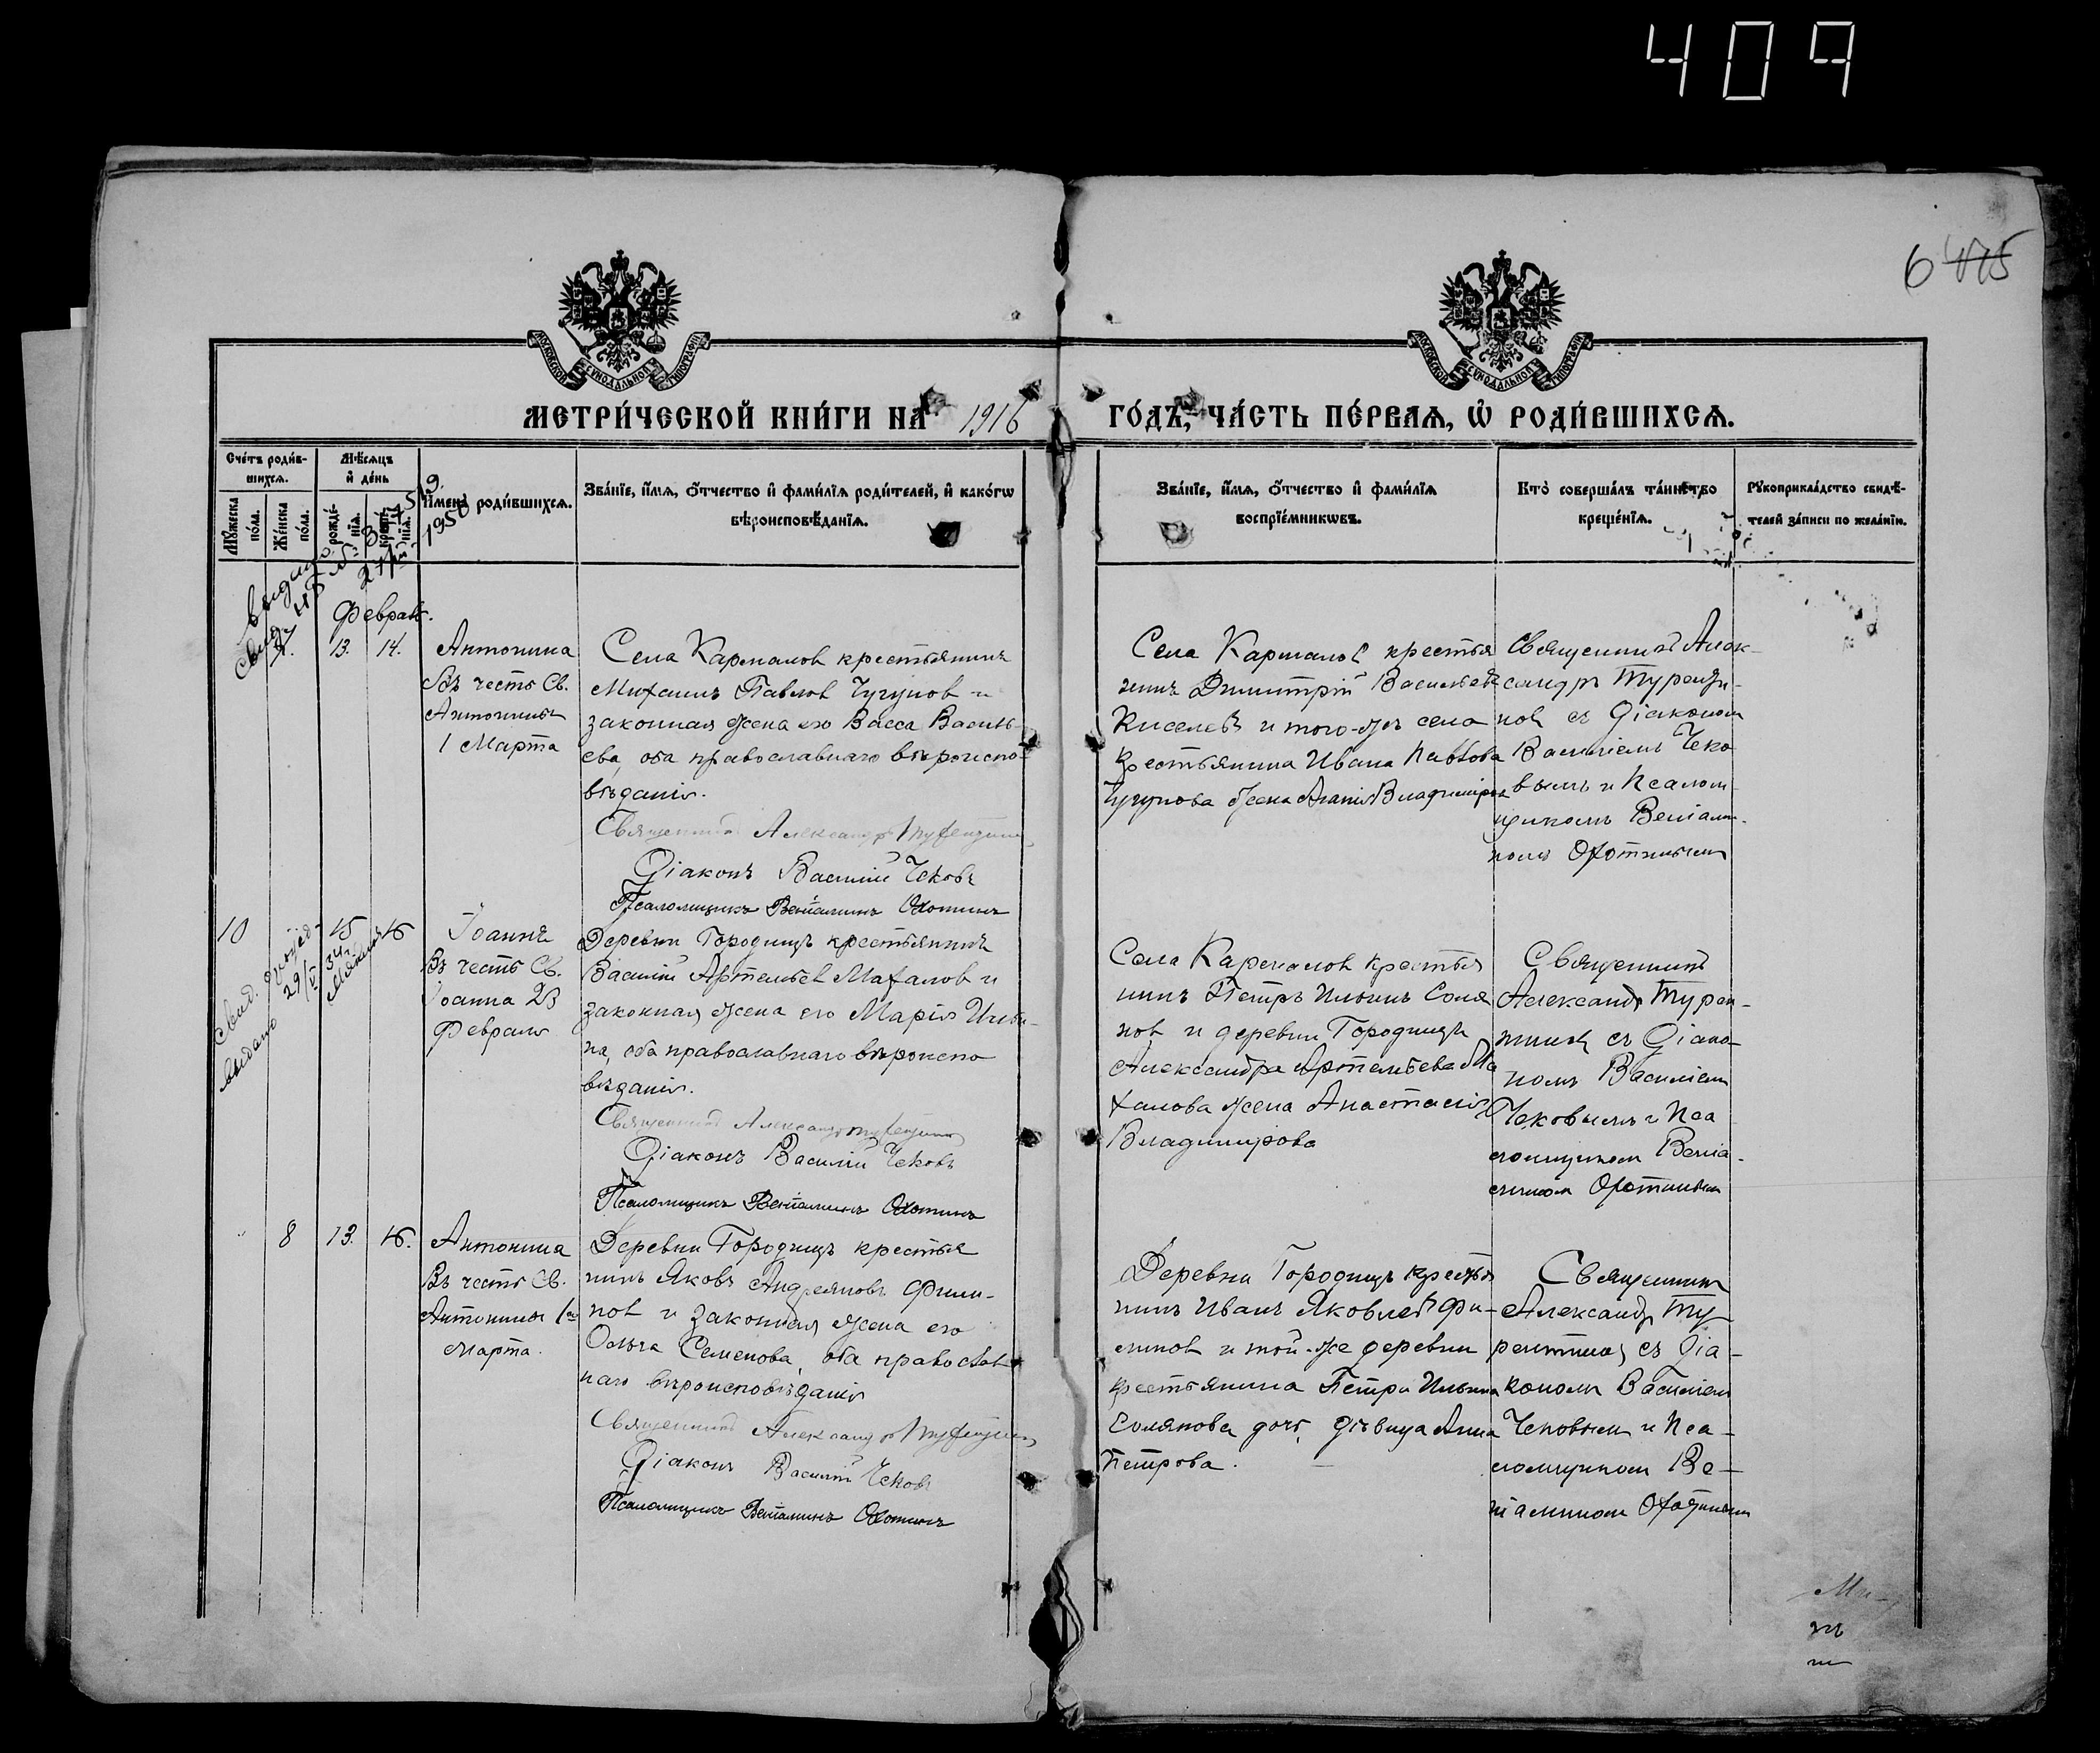 409
6 475
МОСКОВСКОЙ СѴНОДАЛЬНОЙ ТИПОГРАФІИ
МОСКОВСКОЙ СѴНОДАЛЬНОЙ ТИПОГРАФІИ
МЕТРИ́ЧЕСКОЙ КНИ́ГИ НА 1916 ГО́ДЪ, ЧА́СТЬ ПЕ́РВАѦ, Ѡ҆ РОДИ́ВШИХСѦ.
Сче́тъ роди́в-
шихсѧ.
Мѣ́сѧцъ
и҆ де́нь
Мꙋ́жеска по́ла.
Же́нска по́ла.
рожде́-
нїѧ.
креще́-
нїѧ.
И҆мена̀ роди́вшихсѧ.
Зва́нїе, и҆́мѧ, ѻ҆́тчество и҆ фами́лїѧ роди́телей, и҆ како́гѡ
вѣроисповѣ́данїѧ.
Зва́нїе, и҆́мѧ, ѻ҆́тчество и҆ фами́лїѧ
воспрїе́мникѡвъ.
Кто̀ соверша́лъ та́инство
креще́нїѧ.
Рꙋкоприкла́дство свидѣ́-
телей за́писи по жела́нїю.
Феврал.
13. 14.
Антонина
Въ честь Св.
Антонины
1 Марта
Села Кармалов крестьянинъ
Михаилъ Павлов Чугунов и
законная жена его Васса Василь-
ева, оба православнаго вѣроиспо-
вѣданія.
Священникъ Александръ Турентин
Діаконъ Василій Чековъ
Псаломщикъ Веніаминъ Охотинъ
Села Кармалов крестья
нинъ Димитрій Васильев
Киселев и того-же села
крестьянина Ивана Павлова
Чугунова жена Агапія Владимірова
Священникъ Алек-
сандръ Туренти-
нов съ Діаконом
Василіемъ Чеко
вымъ и Псалом-
щикомъ Веніами-
номъ Охотинымъ
10 15 16
Свид.
выдано
29/V 34 г.
Іоаннъ
Въ честь Св.
Іоанна 23
Февраля
Деревни Городищъ крестьянинъ
Василій Артемьев Махалов и
законная жена его Марія Ильи-
на, оба православнаго вѣроиспо
вѣданія.
Священникъ Александръ Турентин
Діаконъ Василій Чековъ
Псаломщикъ Веніаминъ Охотинъ
Села Кармалов крестья
нинъ Петръ Ильинъ Соля
нов и деревни Городищъ
Александра Артемьева Ма
халова жена Анастасія
Владимірова
Священникъ
Александр Турен-
тинов съ Діако-
номъ Василіем
Чековымъ и Пса
ломщиком Веніа-
мином Охотиным
8 13. 16.
Антонина
Въ честь Св.
Антонины 1го
Марта.
Деревни Городищъ крестья
нинъ Яковъ Андреяновъ Фили-
нов и законная жена его
Ольга Семенова, оба православ
наго вѣроисповѣданія
Священникъ Александръ Турентин
Діаконъ Василій Чековъ
Псаломщикъ Веніаминъ Охотинъ
Деревни Городищъ крестья
нинъ Иванъ Яковлев Фи-
линов и той-же деревни
крестьянина Петра Ильина
Солянова дочь, дѣвица Анна
Петрова.
Священник
Александр Ту
рентинов съ Діа-
коном Василіем
Чековым и Пса-
ломщиком Ве-
ніамином Охотиным